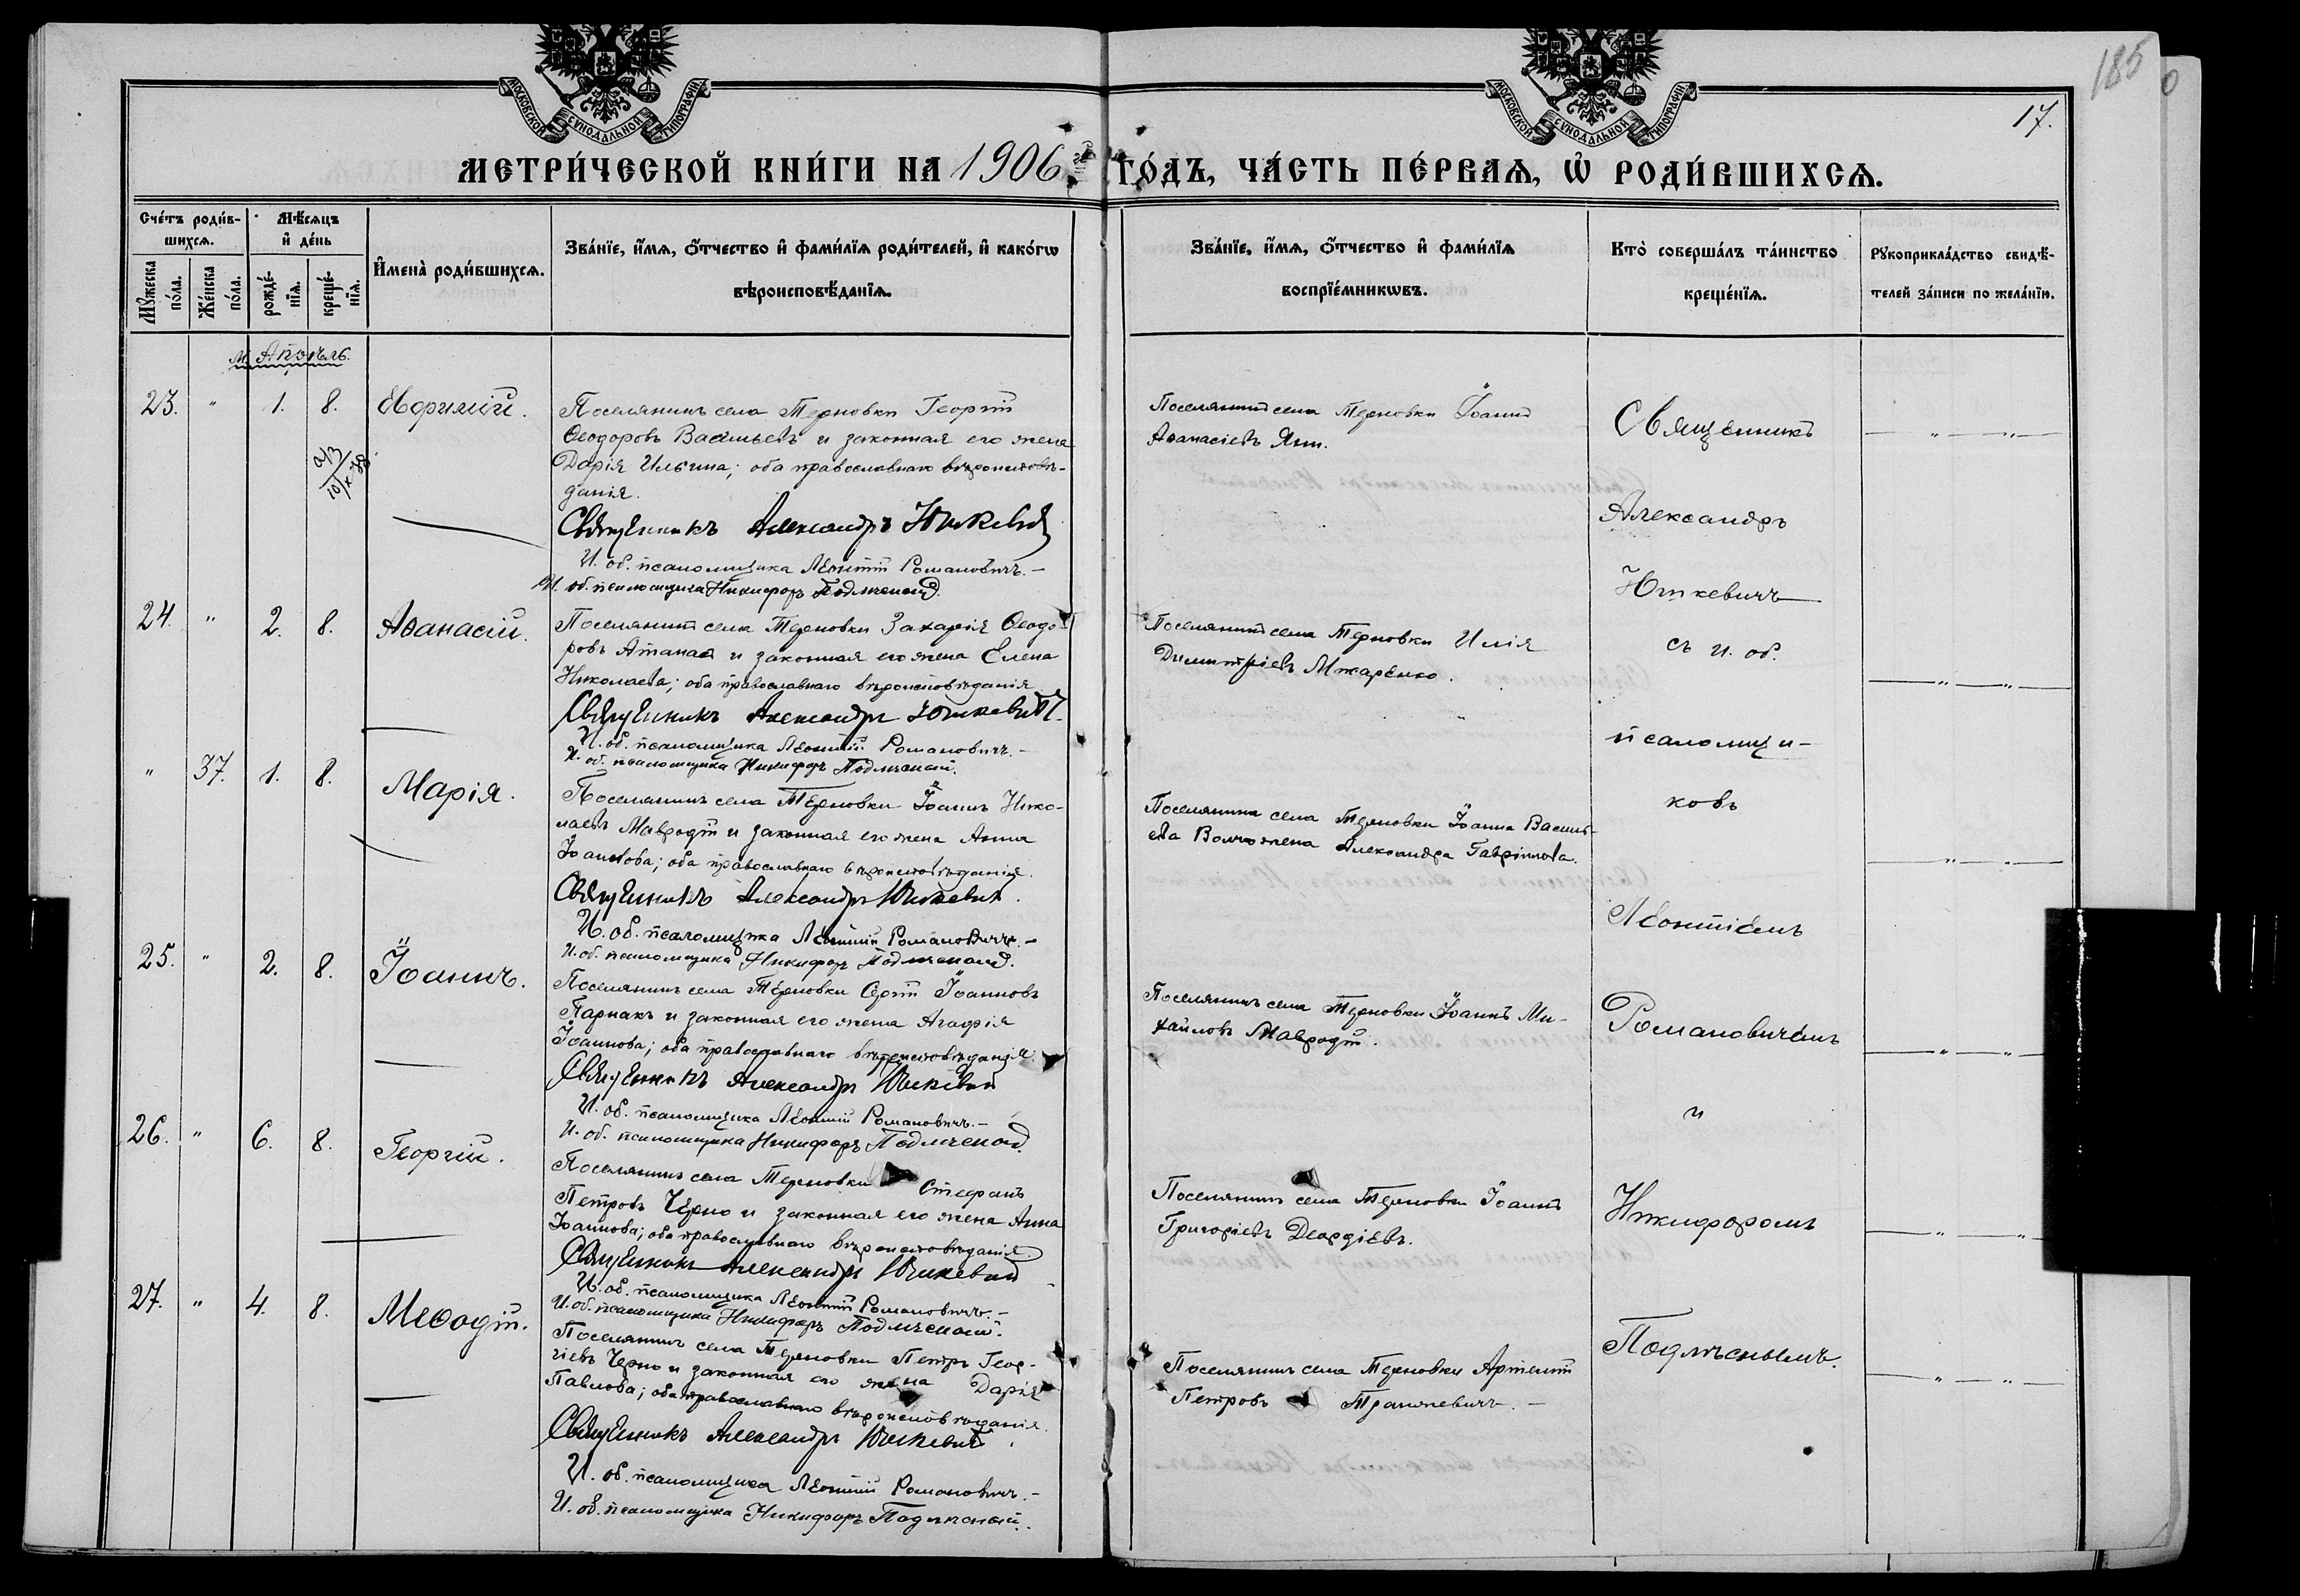 185
17.
МОСКОВСКОЙ СѴНОДАЛЬНОЙ ТИПОГРАФІИ
МОСКОВСКОЙ СѴНОДАЛЬНОЙ ТИПОГРАФІИ
МЕТРИ́ЧЕСКОЙ КНИ́ГИ НА 1906 ГО́ДЪ, ЧА́СТЬ ПЕ́РВАѦ, Ѡ҆ РОДИ́ВШИХСѦ.
Сче́тъ роди́в-
шихсѧ.
Мѣ́сѧцъ
и҆ де́нь
Мꙋ́жеска по́ла.
Же́нска по́ла.
рожде́-нїѧ.
креще́-нїѧ.
И҆мена̀ роди́вшихсѧ.
Зва́нїе, и҆́мѧ, ѻ҆́тчество и҆ фами́лїѧ роди́телей, и҆ како́гѡ
вѣроисповѣ́данїѧ.
Зва́нїе, и҆́мѧ, ѻ҆́тчество и҆ фами́лїѧ
воспрїе́мникѡвъ.
Кто̀ соверша́лъ та́инство
креще́нїѧ.
Рꙋкоприкла́дство свидѣ́-
телей за́писи по жела́нїю.
м. Апрѣль.
23. " 1. 8. Евфимій.
Поселянинъ села Терновки Георгій
Ѳеодоровъ Васильевъ и законная его жена
Дарія Ильина; оба православнаго вѣроисповѣ-
данія.
Священникъ Александръ Юшкевичъ
И. об. псаломщика Леонтій Романовичъ.-
И. об. псаломщика Никифоръ Подлѣсный.
Поселянинъ села Терновки Іоаннъ
Аѳанасіевъ Яни.
24. " 2. 8. Аѳанасій.
Поселянинъ села Терновки Захарія Ѳеодо-
ровъ Атанаса и законная его жена Елена
Николаева; оба православнаго вѣроисповѣданія
Священникъ Александръ Юшкевичъ.
И. об. псаломщика Леонтій Романовичъ.-
И. об. псаломщика Никифоръ Подлѣсный.
Поселянинъ села Терновки Илія
Димитріевъ Мжаренко.
" 37. 1. 8. Марія.
Поселянинъ села Терновки Іоаннъ Нико-
лаевъ Мавродій и законная его жена Анна
Іоаннова; оба православнаго вѣроисповѣданія.
Священникъ Александръ Юшкевич.
И. об. псаломщика Леонтій Романовичъ.-
И. об. псаломщика Никифоръ Подлѣсный.
Поселянина села Терновки Іоанна Василь-
ева Волчо жена Александра Гавріилова.
25. " 2. 8. Іоаннъ.
Поселянинъ села Терновки Сергій Іоанновъ
Парнакъ и законная его жена Агафія
Іоаннова; оба православнаго вѣроисповѣданія.
Священникъ Александръ Юшкевич
И. об. псаломщика Леонтій Романовичъ.-
И. об. псаломщика Никифоръ Подлѣсный.
Поселянинъ села Терновки Іоаннъ Ми-
хайловъ Мавродій.
26. " 6. 8. Георгій.
Поселянинъ села Терновки Стефанъ
Петровъ Черно и законная его жена Анна
Іоаннова; оба православнаго вѣроисповѣданія.
Священникъ Александръ Юшкевич
И. об. псаломщика Леонтій Романовичъ.-
И. об. псаломщика Никифоръ Подлѣсный.
Поселянинъ села Терновки Іоаннъ
Григоріевъ Деордіевъ.
27. " 4. 8. Меѳодій.
Поселянинъ села Терновки Петръ Геор-
гіевъ Черно и законная его жена Дарія
Павлова; оба православнаго вѣроисповѣданія.
Священникъ Александръ Юшкевич.
И. об. псаломщика Леонтій Романовичъ.-
И. об. псаломщика Никифоръ Подлѣсный.
Поселянинъ села Терновки Артемій
Петровъ
Священникъ
Александръ
Юшкевичъ
съ и. об.
псаломщи-
ковъ
Леонтіемъ
Романовичемъ
и
Никифоромъ
Подлѣснымъ.